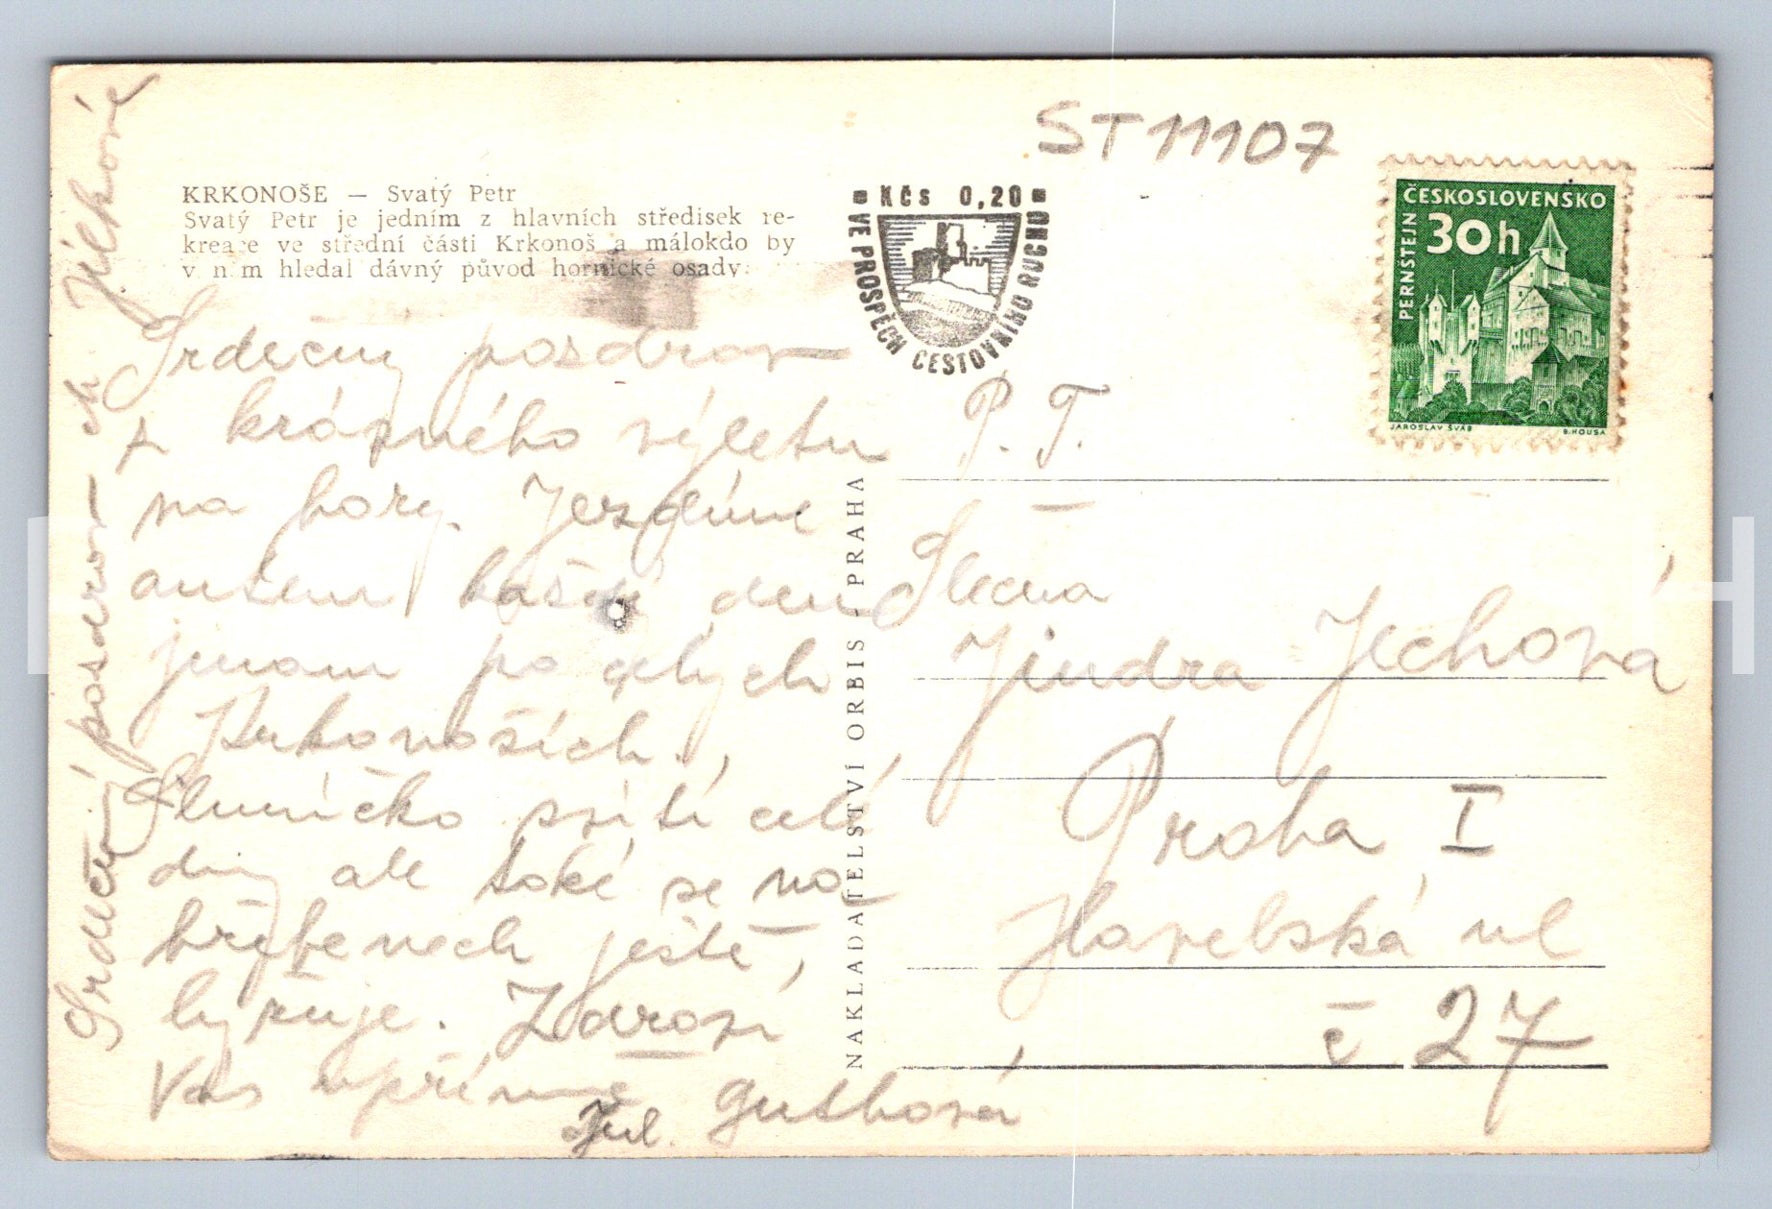 ST11107
KRKONOŠE — Svatý Petr
Svatý Petr je jedním z hlavních středisek re-
kreace ve střední části Krkonoš a málokdo by
v něm hledal dávný původ hornické osady.
KČs 0,20
VE PROSPĚCH CESTOVNÍHO RUCHU
ČESKOSLOVENSKO
30h
PERNŠTEJN
JAROSLAV ŠVÁB
B. HOUSA
Srdečný pozdrav
z krásného výletu
na hory. Jezdíme
autem každý den
jenom po celých
Krkonoších,
Sluníčko svítí celé
dny ale také se na
hřebenech ještě,
lyžuje. Zdraví
Vás upřímně Guthová
Jul.
Srdečný pozdrav Jílkové
NAKLADATELSTVÍ ORBIS - PRAHA
P. T.
Slečna
Jindra Jechová
Praha I
Havelská ul
č 27